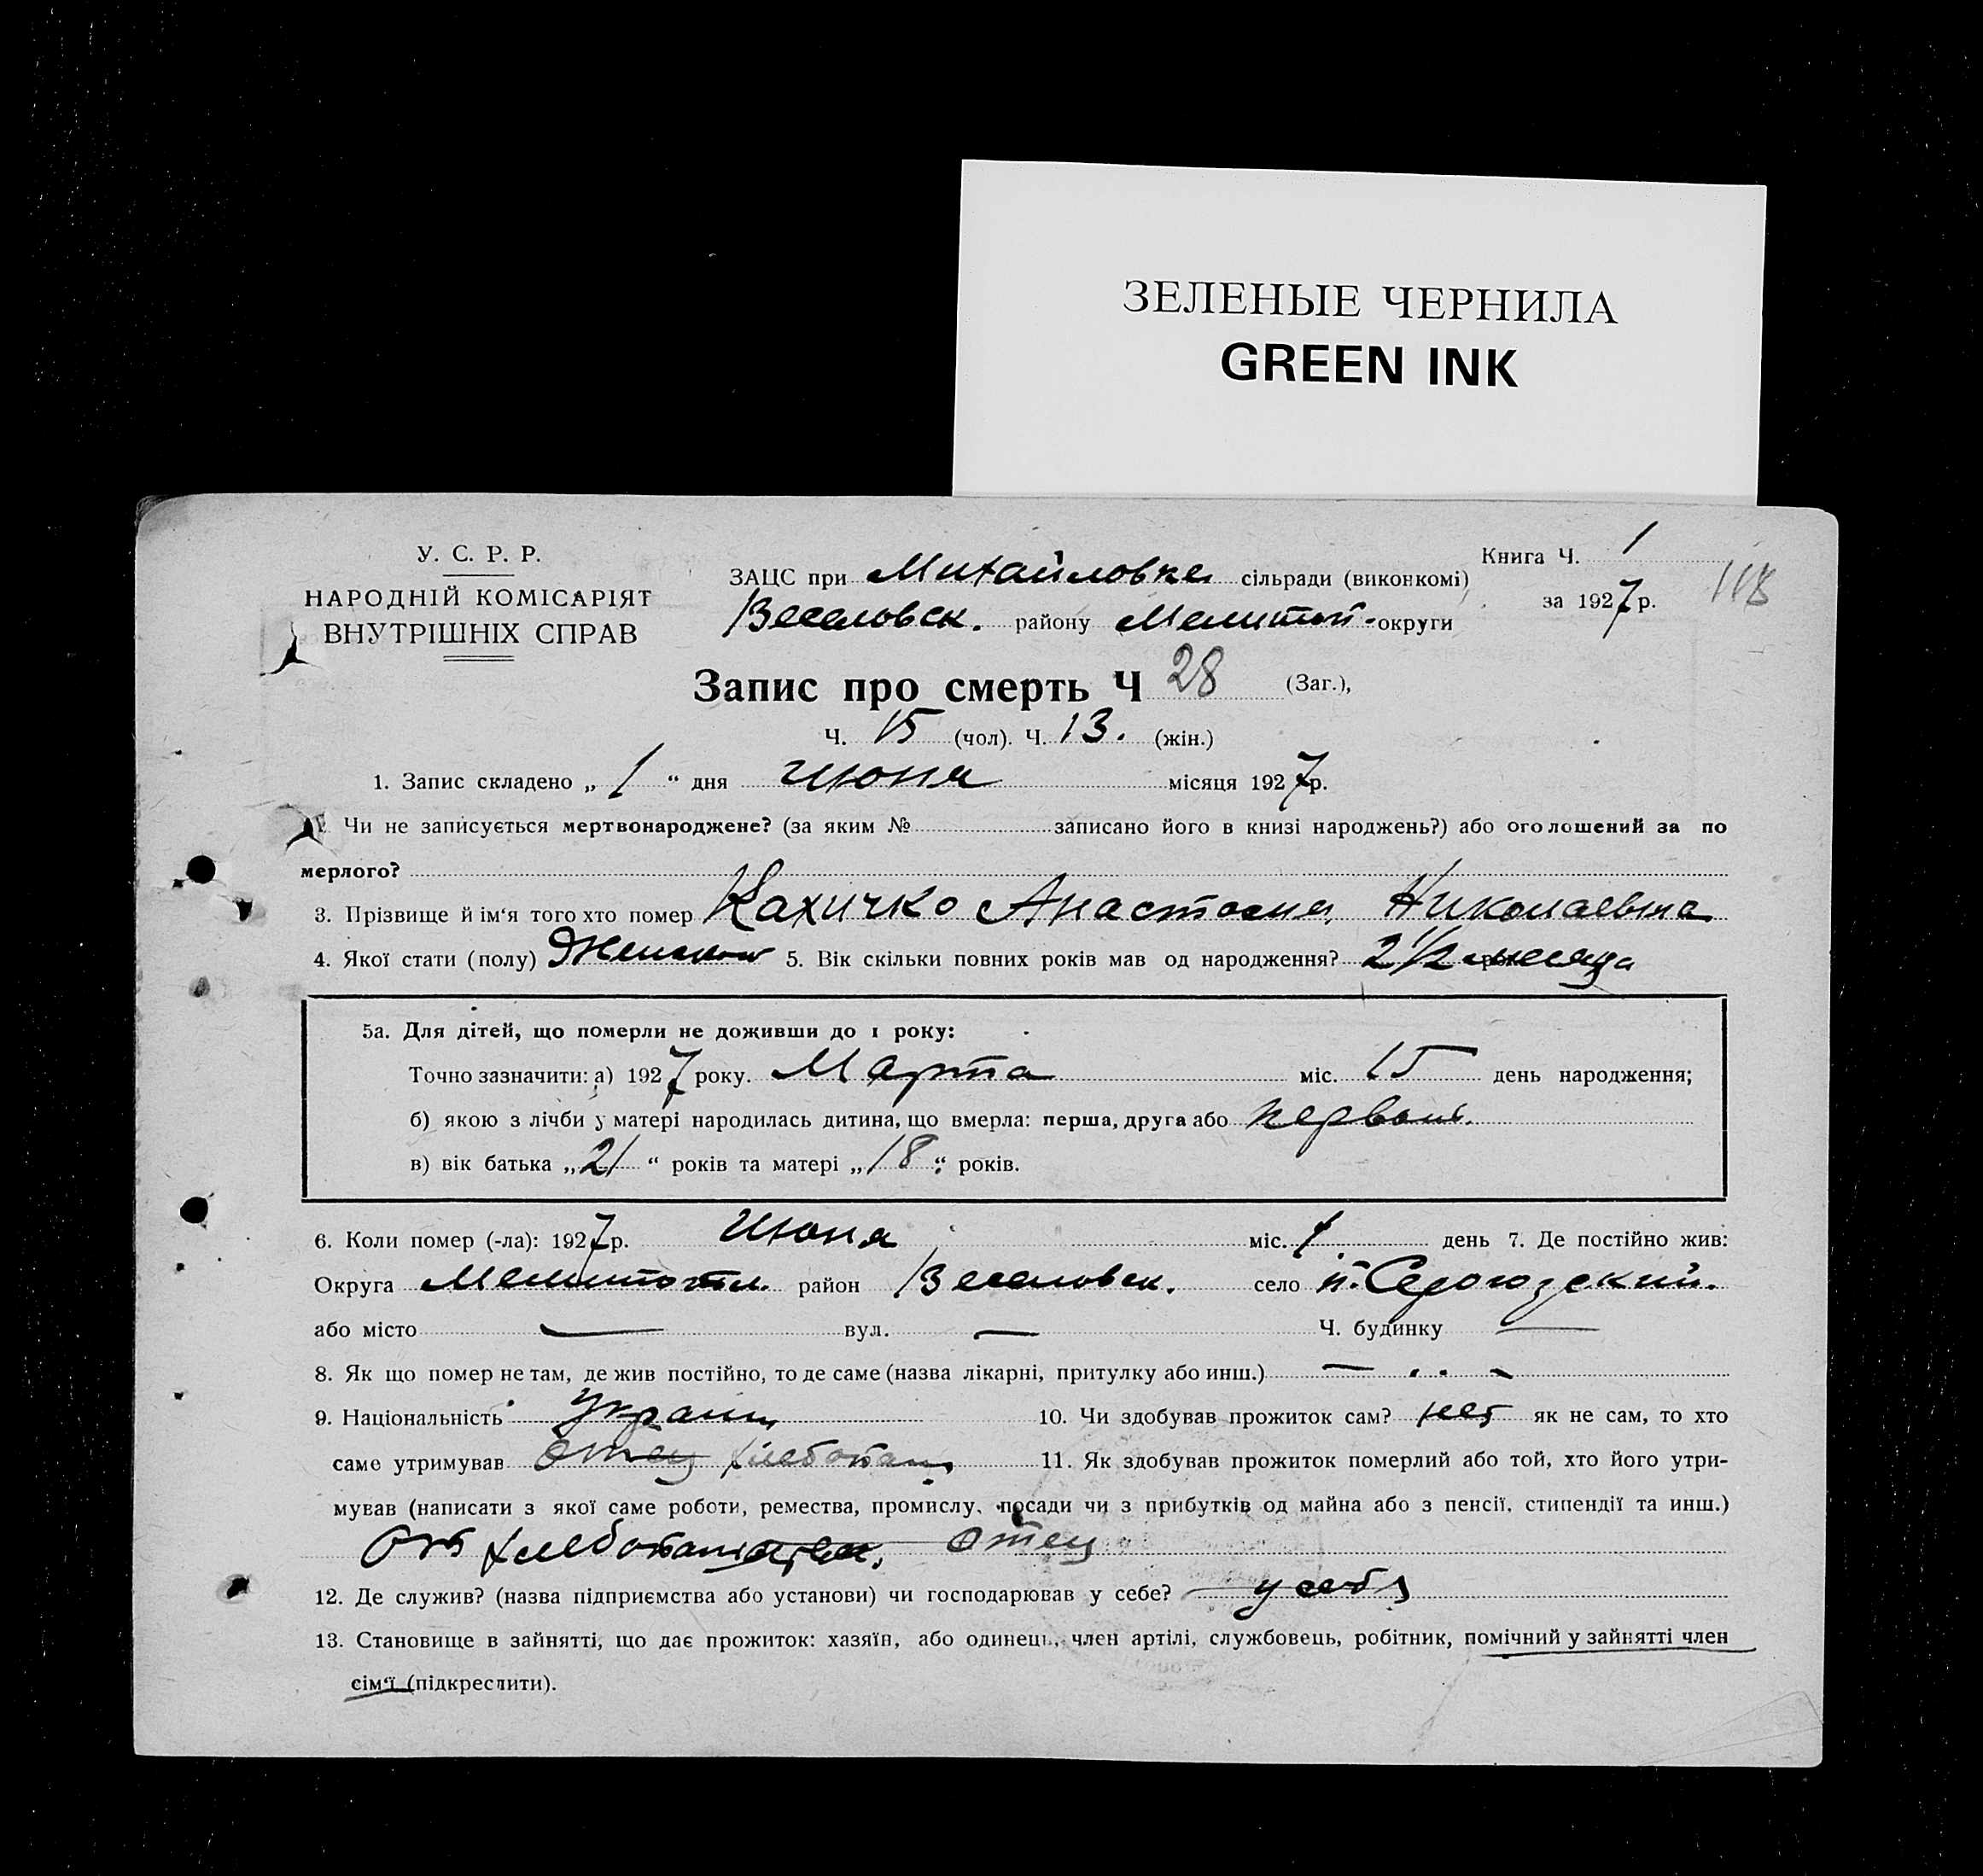 ЗЕЛЕНЫЕ ЧЕРНИЛА
GREEN INK
У. С. Р. Р.
НАРОДНІЙ КОМІСАРІЯТ
ВНУТРІШНІХ СПРАВ
Книга Ч. 1
за 1927 р.
118
ЗАЦС при Михайловке сільради (виконкомі)
Веселовск. району Мелитоп. округи
Запис про смерть Ч 28 (Заг.),
Ч. 15 (чол). Ч. 13. (жін.)
1. Запис складено „ 1 “ дня Июня місяця 1927 р.
Чи не записується мертвонароджене? (за яким № записано його в книзі народжень?) або оголошений за по
мерлого?
3. Прізвище й ім‘я того хто помер Кахичко Анастасия Николаевна
4. Якої стати (полу) Женского 5. Вік скільки повних років мав од народження? 2 1/2 месяца
5а. Для дітей, що померли не доживши до 1 року:
Точно зазначити: а) 1927 року. Марта міс. 15 день народження;
б) якою з лічби у матері народилась дитина, що вмерла: перша, друга або первый.
в) вік батька „ 21 “ років та матері „ 18 “ років.
6. Коли помер (-ла): 1927 р. Июня міс. 1 день 7. Де постійно жив:
Округа район Веселовск. село п. Серогозский.
або місто — вул. — Ч. будинку —
8. Як що помер не там, де жив постійно, то де саме (назва лікарні, притулку або инш.) —
9. Національність Украин 10. Чи здобував прожиток сам? нет як не сам, то хто
саме утримував отец хлебопаш 11. Як здобував прожиток померлий або той, хто його утри-
мував (написати з якої саме роботи, ремества, промислу, посади чи з прибутків од майна або з пенсії, стипендії та инш.)
От хлебопашества. отец
12. Де служив? (назва підприємства або установи) чи господарював у себе? у себя
13. Становище в зайнятті, що дає прожиток: хазяїн, або одинець, член артілі, службовець, робітник, помічний у зайнятті член
сім‘ї (підкреслити).